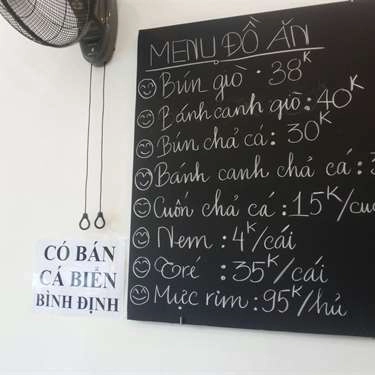 MENU ĐỒ ĂN
Bún giò : 38K
Bánh canh giò : 40K
Bún chả cá : 30K
Bánh canh chả cá : 3
Cuốn chả cá : 15K/cuố
Nem : 4K/cái
Tré : 35K/cái
Mực rim : 95K/hủ
CÓ BÁN
CÁ BIỂN
BÌNH ĐỊNH